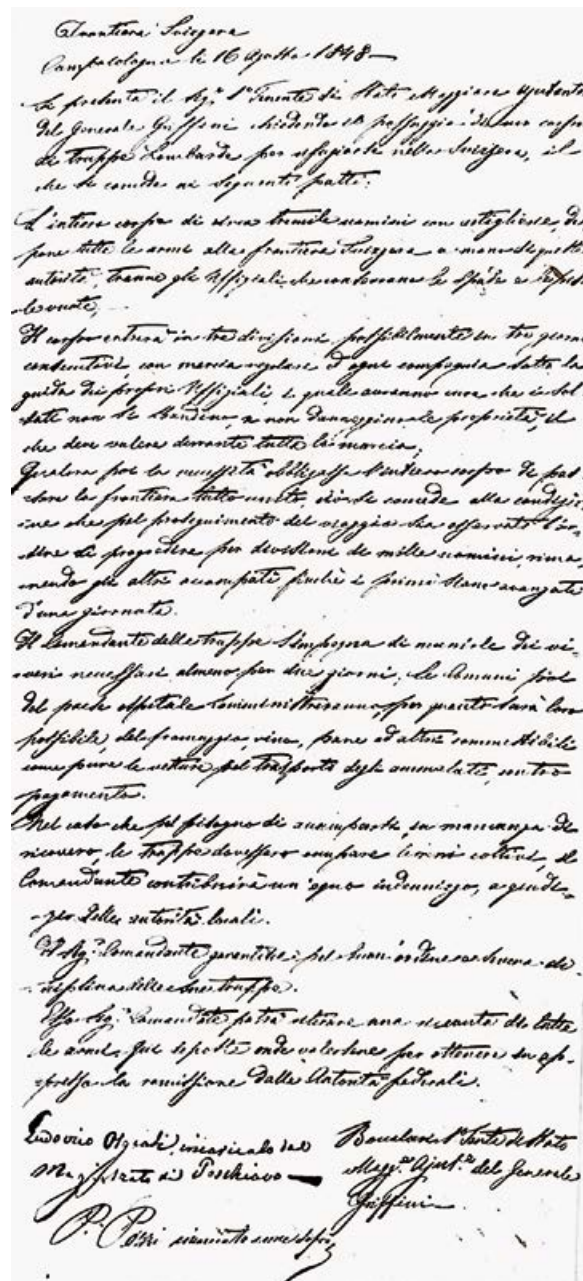 Frontiera Svizzera
Campocologno li 16 Agosto 1848
Si presenta il Sigr. 1o Tenente di Stato Maggiore ajutante
del Generale Griffini chiedendo il passaggio di un corpo
di truppe Lombarde per rifugiarsi nella Svizzera, il
che si concede ai seguenti patti:
L'intiero corpo di circa tremila uomini con artiglieria, di-
pone tutte le armi alla frontiera Svizzera a mano di queste
autorità, tranne gli Uffiziali che conservano le Spade e
le vuote.
Il corpo entrerà in tre divisioni possibilmente in tre giorni
consecutivi, con marcia regolare d'ogni compagnia sotto la
guida dei propri Uffiziali, i quali avranno cura che i Sol-
dati non si sbandino, e non danneggino le proprietà, il
che deve valere durante tutta la marcia;
Qualora poi la necessità obbligasse l'intiero corpo di pas-
sare la frontiera tutto unito, ciò si concede alla condizi-
one che pel proseguimento del viaggio sia osservato l'or-
dine di progredire per divisione di mille uomini, rima-
nendo gli altri accampati finchè i primi siano avanzati
d'una giornata.
Il Comandante delle truppe s'impegna di munirle dei vi-
veri necessari almeno per due giorni; le Comuni poi
del paese ospitale somministreranno, per quanto sarà loro
possibile, del formaggio, vino, pane ed altri commestibili
come pure le vetture pel trasporto degli ammalati, contro
pagamento.
Nel caso che pel bisogno di accamparsi, in mancanza di
ricovero, le truppe dovessero occupare terreni coltivi, il
Comandante contribuirà un equo indennizzo, a giudi-
zio delle autorità locali.
Il Sigr. Comandante garantisce pel buon'ordine e severa di-
sciplina delle sue truppe.
Esso Sigr. Comandate potrà ritirare una ricevuta di tutte
le armi qui deposte onde valersene per ottenere in ap-
presso la remissione dalle Autorità federali.
Ludovico Olgiati, incaricato dal
Magistrato di Poschiavo
1o Tente di Stato
Maggre Ajut.te del Generale
Griffini
P. Pozzi